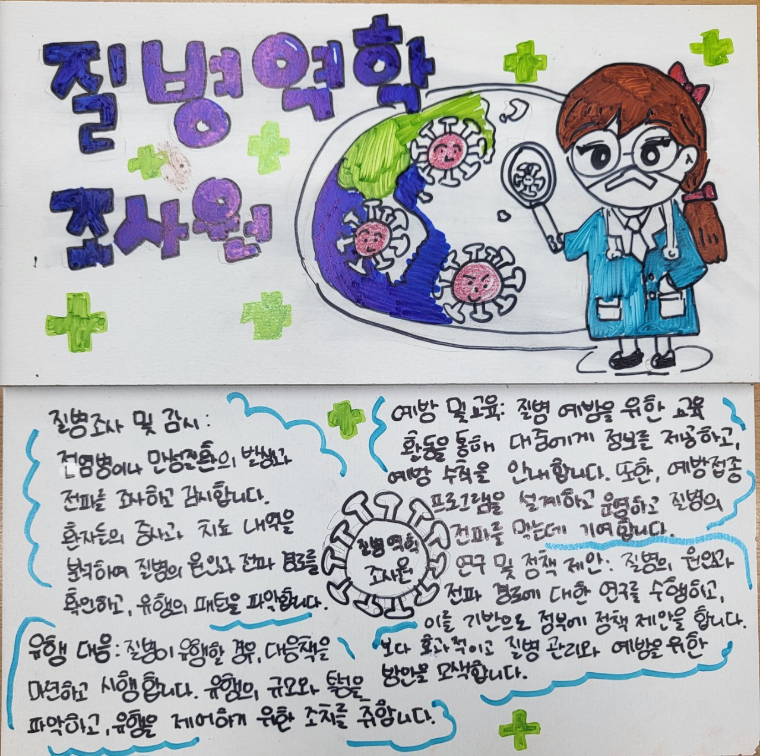 질병역학
조사원
질병조사 및 감시:
전염병이나 만성질환의 발생과
전파를 조사하고 감시합니다.
환자들의 증상과 치료 내역을
분석하여 질병의 원인과 전파 경로를
확인하고, 유행의 패턴을 파악합니다.
유행 대응: 질병이 유행할 경우, 대응책을
마련하고 시행합니다. 유행의 규모와 특성을
파악하고, 유행을 제어하기 위한 조치를 취합니다.
질병 역학
조사원
예방 및 교육: 질병 예방을 위한 교육
활동을 통해 대중에게 정보를 제공하고,
예방 수칙을 안내합니다. 또한, 예방접종
프로그램을 설계하고 운영하고 질병의
전파를 막는데 기여합니다.
연구 및 정책 제안: 질병의 원인과
전파 경로에 대한 연구를 수행하고,
이를 기반으로 정부에 정책 제안을 합니다.
보다 효과적이고 질병 관리와 예방을 위한
방안을 모색합니다.